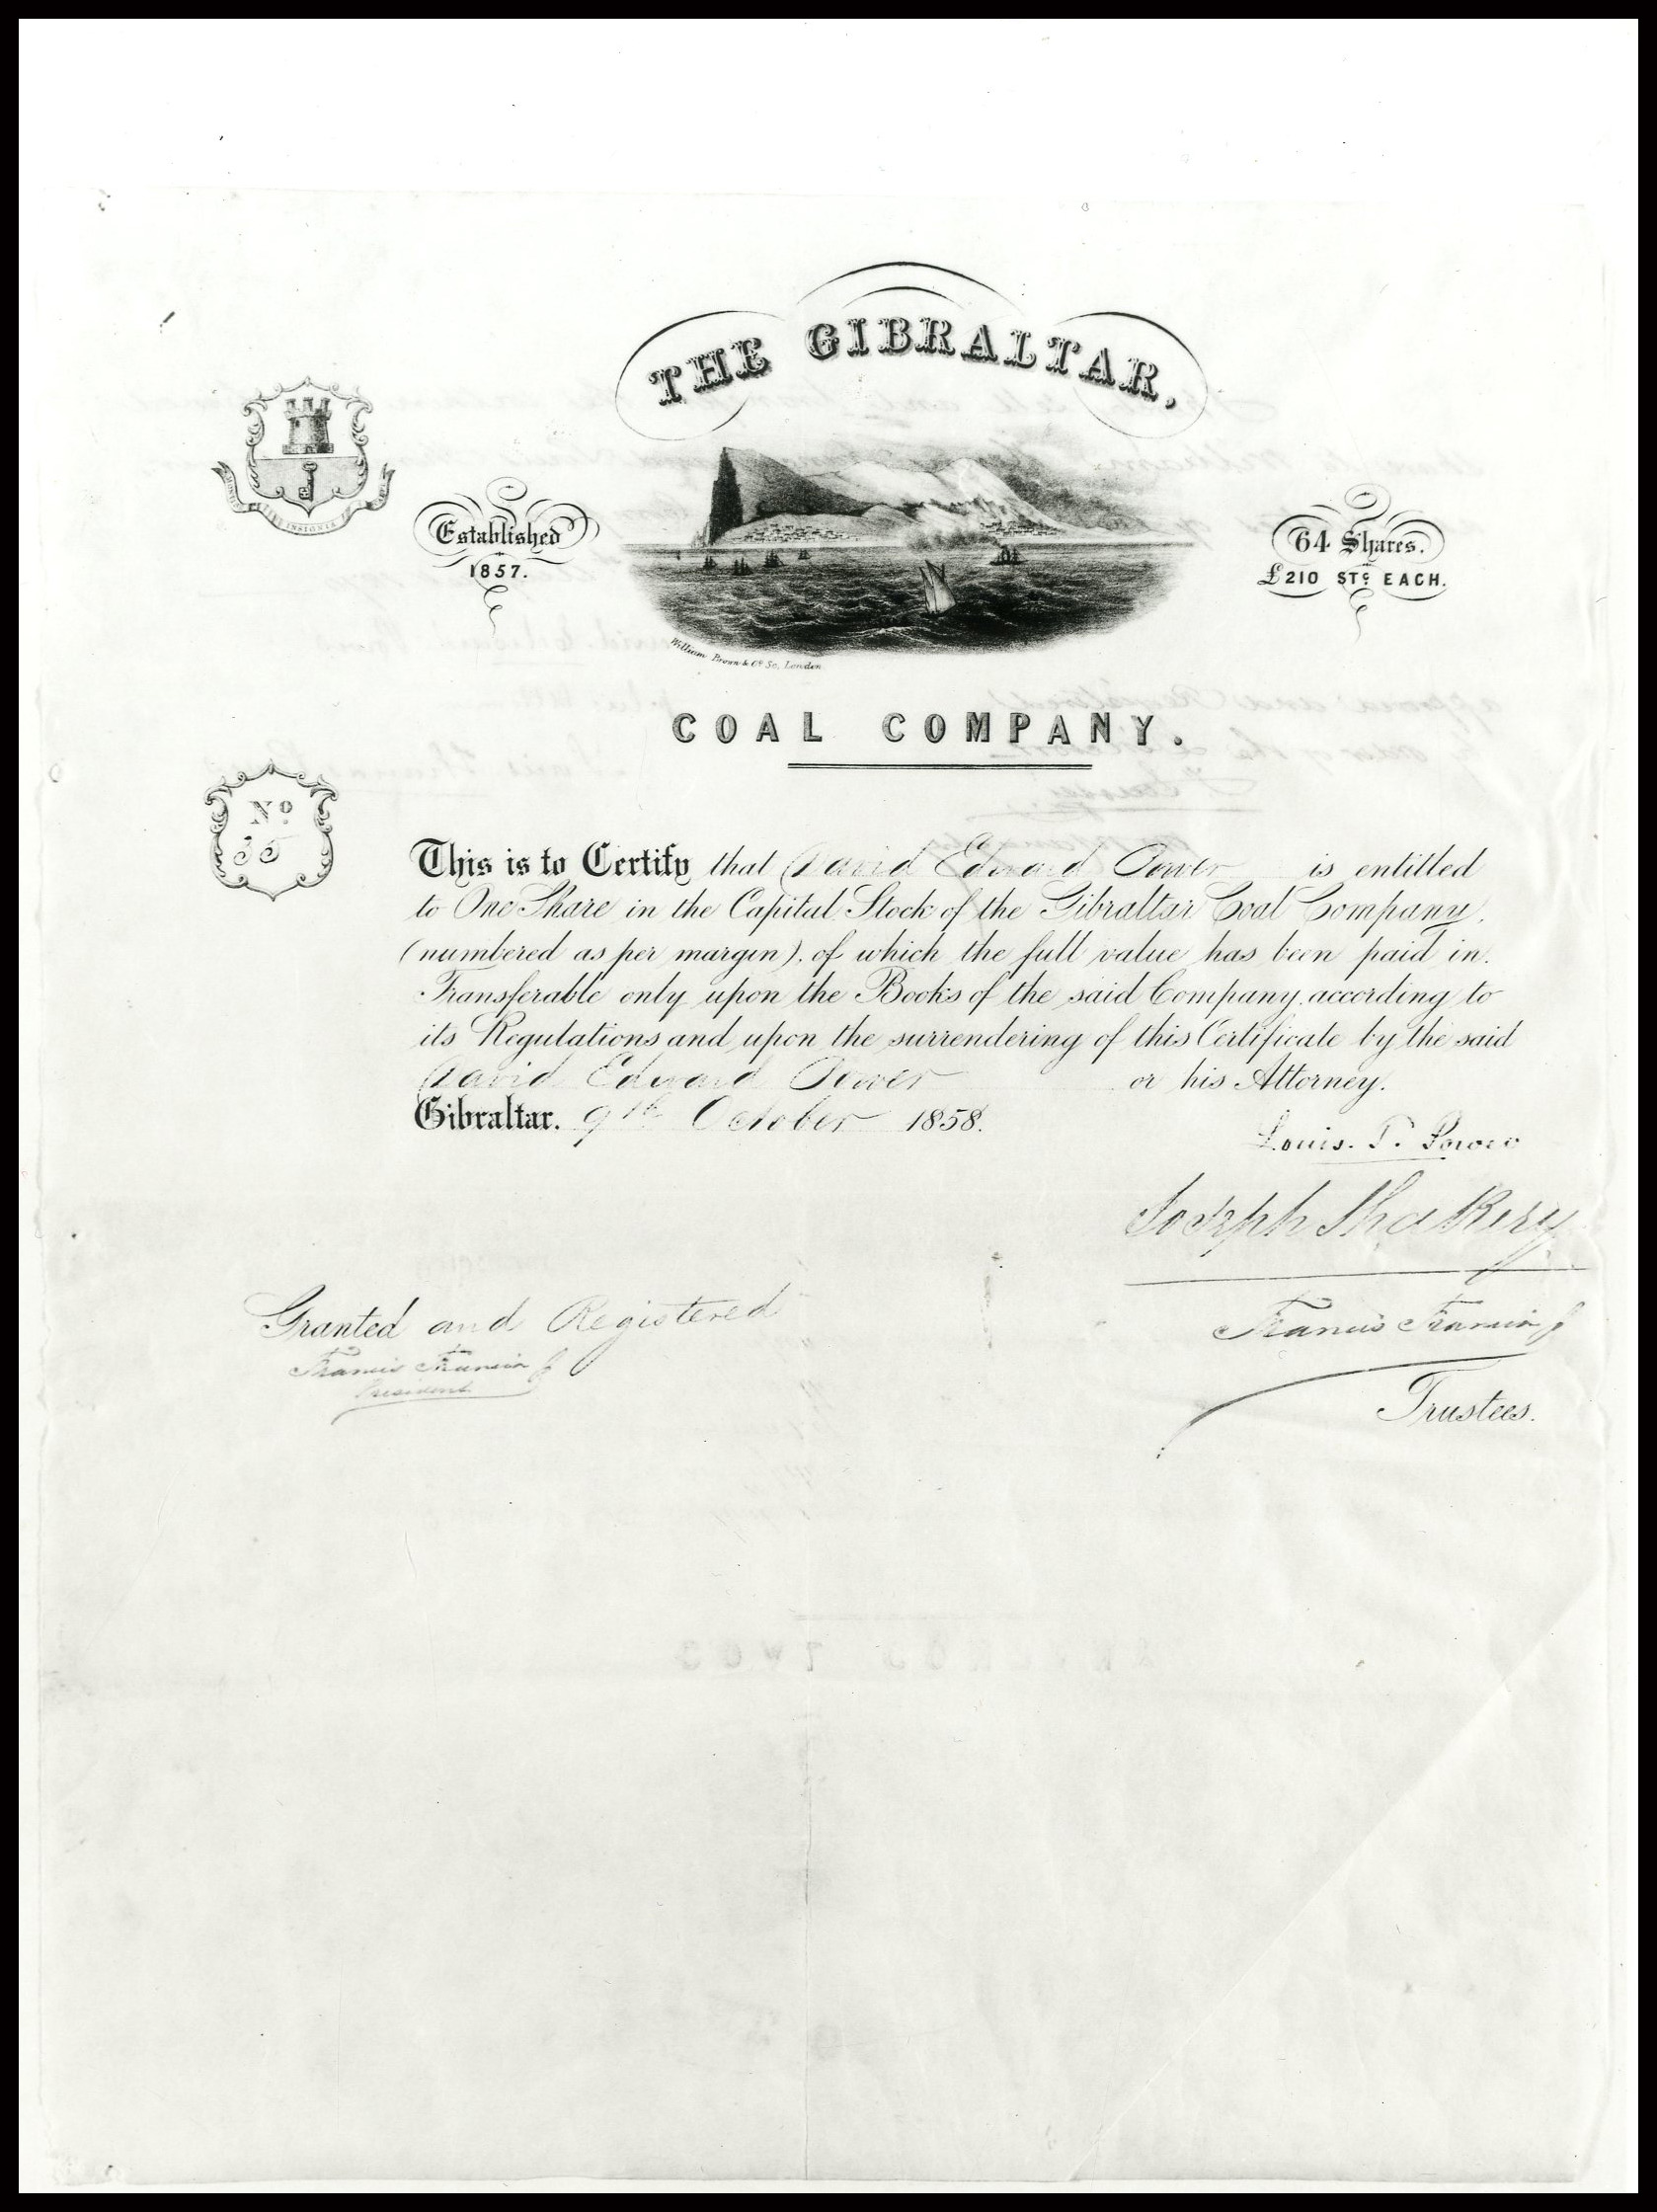 THE GIBRALTAR,
INSIGNIA
Established
1857.
64 Shares.
£210 STG EACH.
William Brown & Co. Sc, London
COAL COMPANY.
No
35
This is to Certify that David Edward Power is entitled
to One Share in the Capital Stock of the Gibraltar Coal Company,
(numbered as per margin), of which the full value has been paid in.
Transferable only upon the Books of the said Company, according to
its Regulations and upon the surrendering of this Certificate by the said
David Edward Power or his Attorney.
Gibraltar. 9th October 1858.
Louis. P. Power
Joseph Shakery
Granted and Registered
Francis Francia
President
Francis Francia
Trustees.